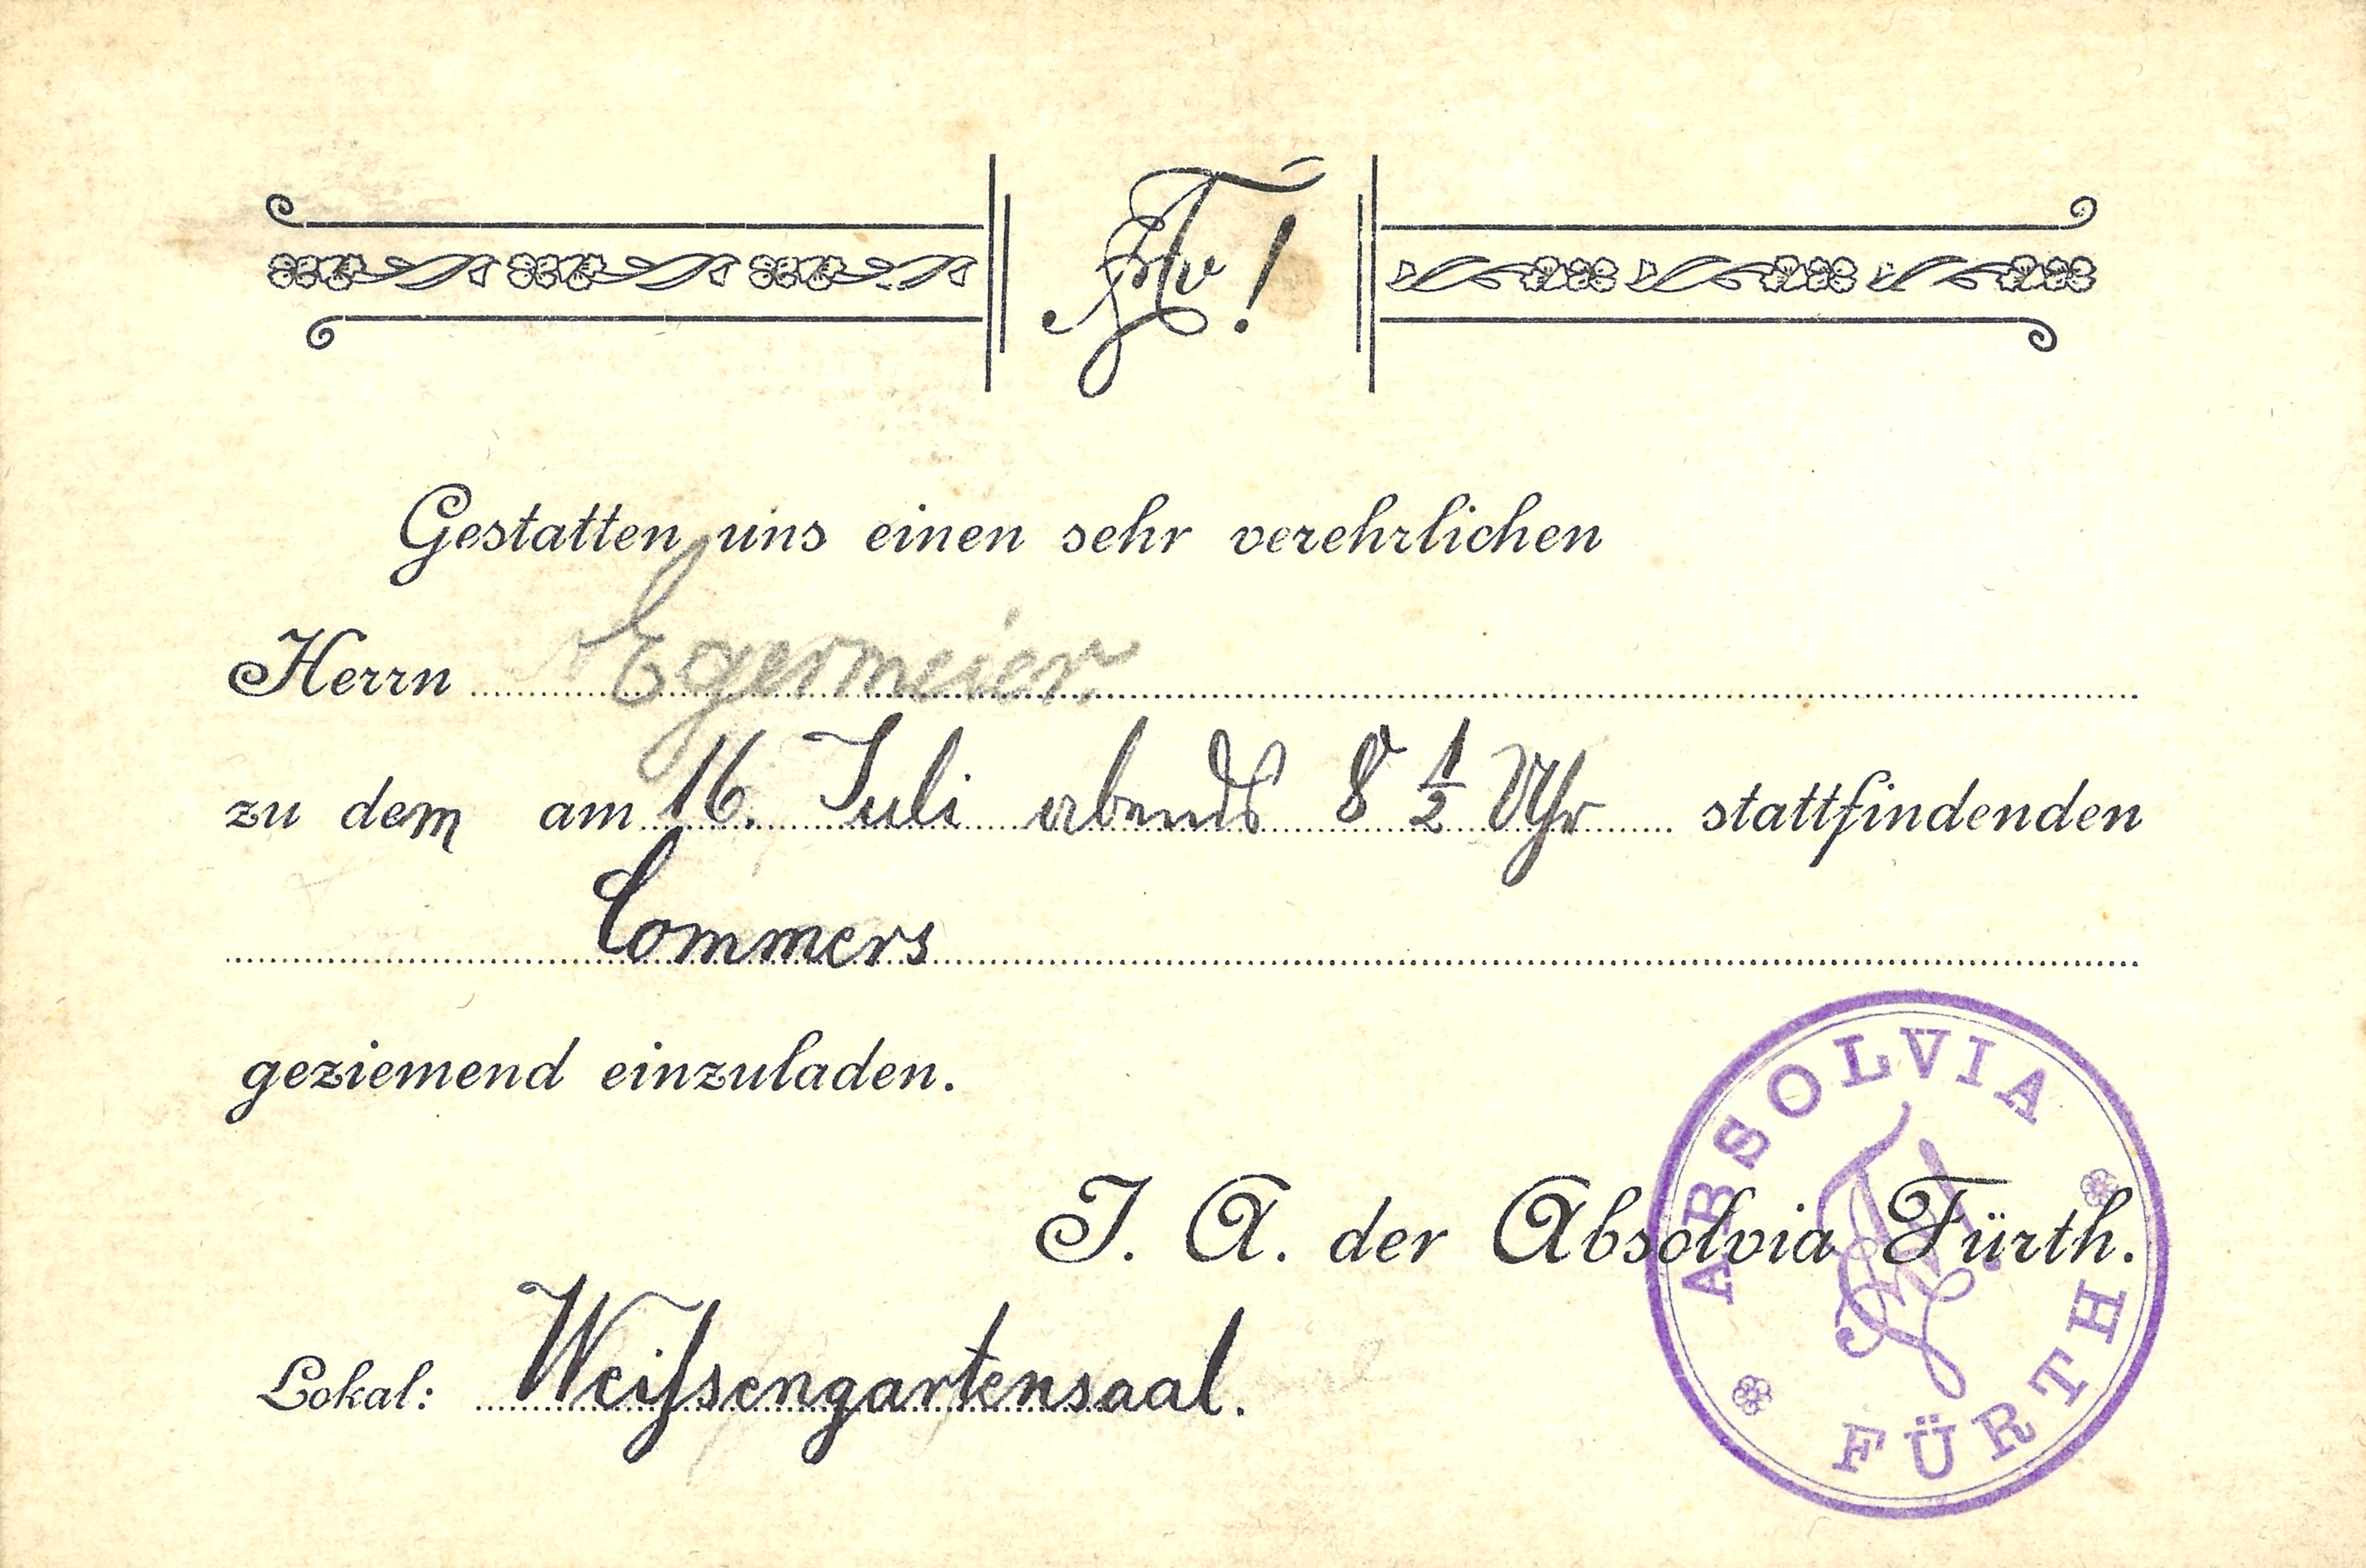 Gestatten uns einen sehr verehrlichen
Herrn Egermeier
zu dem am 16. Juli abends 8 1/2 Uhr stattfindenden
Commers
geziemend einzuladen.
J. A. der Absolvia Fürth.
Lokal: Weißengartensaal.
ABSOLVIA
FÜRTH